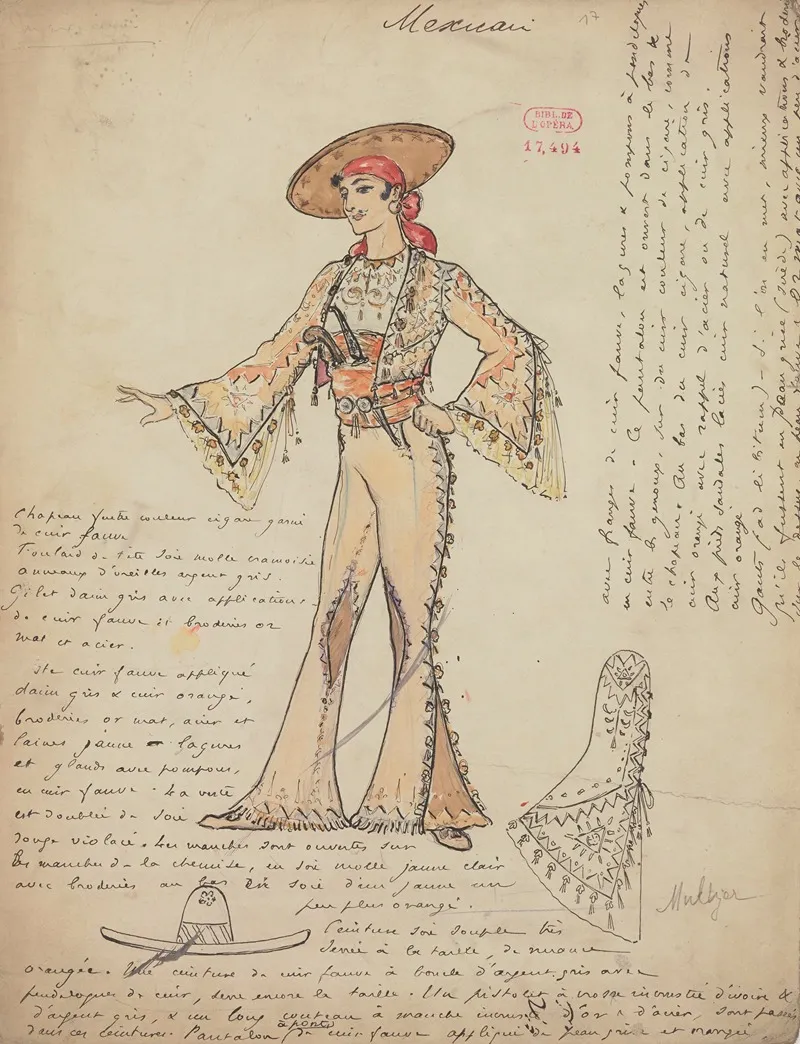 Mexicain
17
BIBL. DE
L'OPÉRA
17,494
Chapeau feutre couleur cigare garni
de cuir fauve
Foulard de tête soie molle cramoisie
anneaux d'oreilles argent gris.
Gilet daim gris avec applications
de cuir fauve et broderies or
mat et acier.
Vte cuir fauve appliqué
daim gris & cuir orangé,
broderies or mat, acier et
laines jaune laçures
et glands avec pompons,
en cuir fauve. La veste
est doublée de soie
rouge violacé. Les manches sont ouvertes sur
les manches de la chemise, en soie molle jaune clair
avec broderies au bas de soie d'un jaune un
peu plus orangé.
Ceinture soie souple très
serrée à la taille, de nuance
orangée. Une ceinture de cuir fauve à boucle d'argent gris avec
pendeloques de cuir, serre encore la taille. Un pistolet à crosse incrustée d'ivoire &
d'argent gris, & un long couteau à manche incrusté d'or & d'acier, sont passés
dans ces ceintures. Pantalon à ponts de cuir fauve appliqué de peau grise et orangée
avec franges de cuir fauve, laçures & pompons à pendeloques
en cuir fauve. Ce pantalon est ouvert dans le bas &
entre les genoux, sur du cuir couleur de cigare, comme
le chapeau. Au bas du cuir cigare, application de
cuir orangé avec rappel d'acier ou de cuir gris.
Aux pieds sandales lacées cuir naturel avec applications
cuir orangé
Gants (pas de bitume) Si l'on en met, mieux vaudrait
qu'ils fussent en peau grise (suède) avec applications & broderies
sur le dessus en peau
Multzer